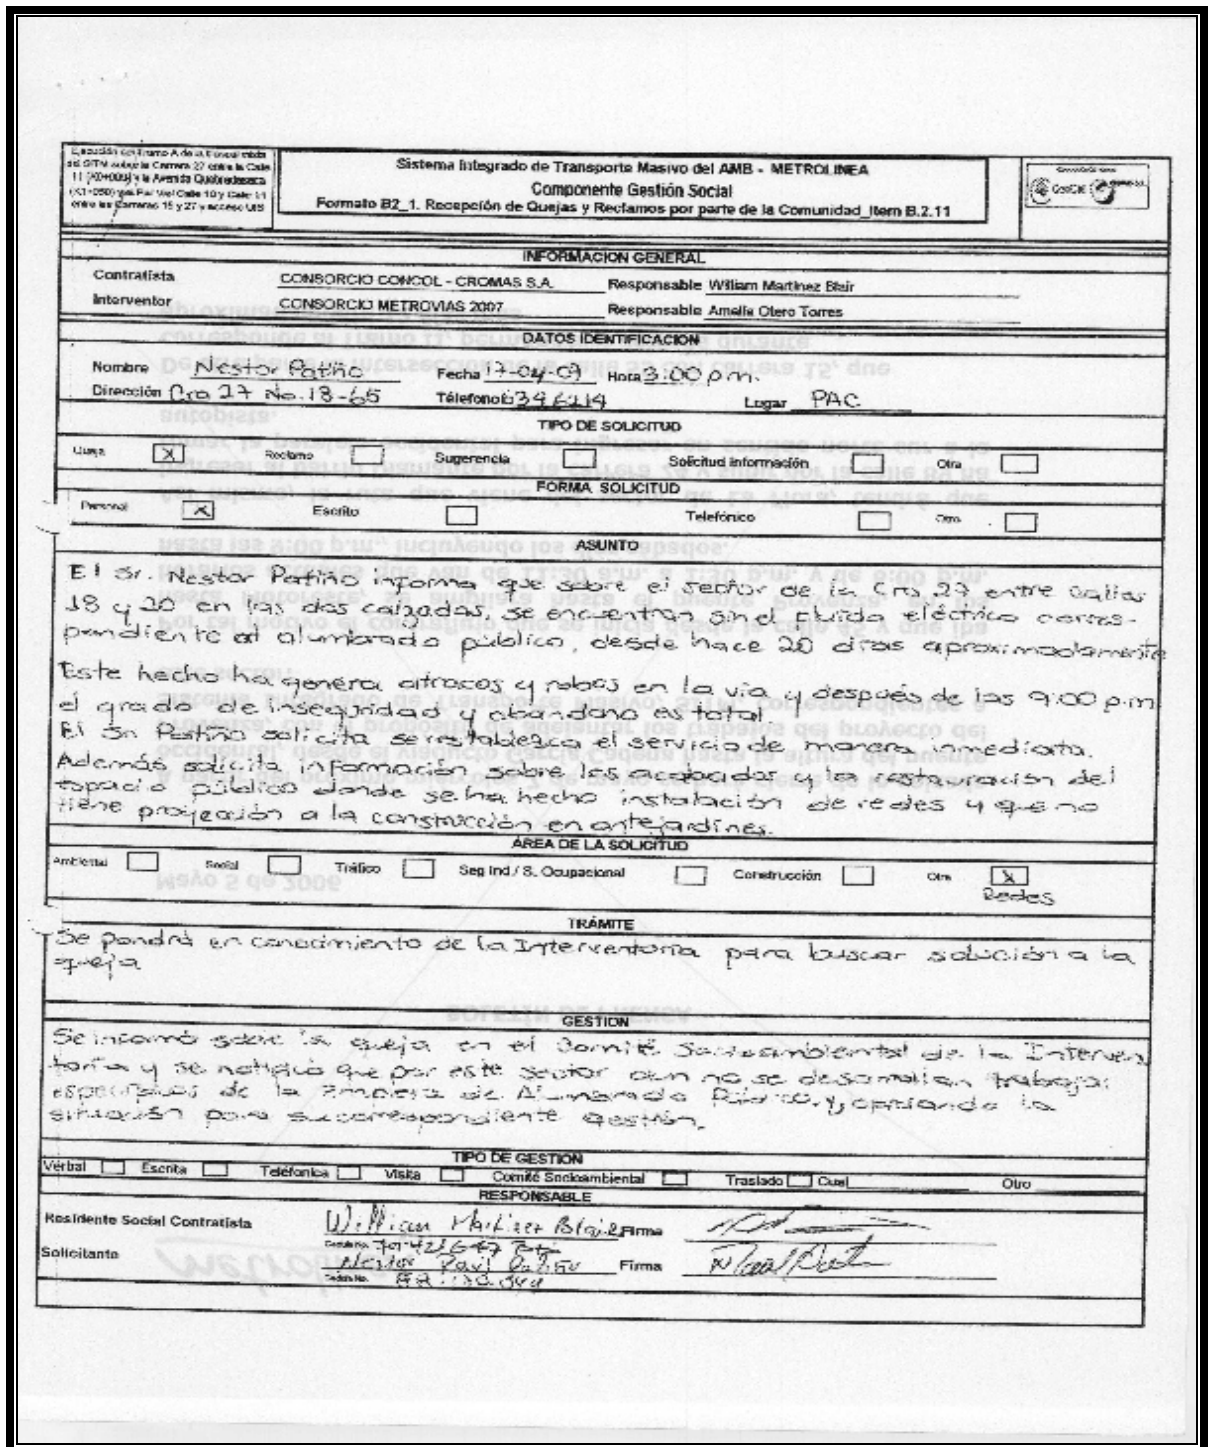 Ejecución del Tramo A de la
del SITM sobre la Carrera 27 entre la Calle
11 (K0+009) y la Avenida Quebradaseca
(K1+050) y Par Vial Calle 10 y Calle 11
entre las Carreras 15 y 27 y acceso UIS
Sistema Integrado de Transporte Masivo del AMB - METROLINEA
Componente Gestión Social
Formato B2_1. Recepción de Quejas y Reclamos por parte de la Comunidad_Item B.2.11
INFORMACION GENERAL
Contratista CONSORCIO CONCOL - CROMAS S.A. Responsable William Martinez Blair
Interventor CONSORCIO METROVIAS 2007 Responsable Amelia Otero Torres
DATOS IDENTIFICACION
Nombre Nestor Patiño Fecha 17-04-07 Hora 3:00 p.m.
Dirección Cra 27 No. 18-65 Télefono 6346214 Lugar PAC
TIPO DE SOLICITUD
Queja X Reclamo Sugerencia Solicitud información Otra
FORMA SOLICITUD
Personal X Escrito Telefónico Otro
ASUNTO
El Sr. Nestor Patiño informa que sobre el sector de la Cra 27 entre calles
18 y 20 en las dos calzadas, se encuentra sin el fluido eléctrico corres-
pondiente al alumbrado público, desde hace 20 días aproximadamente
Este hecho ha genera atracos y robos en la via y después de las 9:00 p.m
el grado de inseguridad y abandono es total.
El Sr Patiño solicita se restablezca el servicio de manera inmediata.
Además solicita información sobre los acabados y la restauración del
espacio público donde se ha hecho instalación de redes y que no
tiene proyección a la construcción en antejardines.
ÁREA DE LA SOLICITUD
Ambiental Social Tráfico Seg Ind./ S. Ocupacional Construcción Otra X
Redes
TRÁMITE
Se pondrá en conocimiento de la Interventoría para buscar solución a la
queja
GESTION
Se informó sobre la queja en el Comité Socioambiental de la Interven
toría y se notificó que por este sector aun no se desarrollan trabajos
específicos de la Empresa de Alumbrado Público, y, la
situación para su correspondiente gestión.
TIPO DE GESTION
Verbal Escrita Teléfonica Visita Comité Socioambiental Traslado Cual Otro
RESPONSABLE
Residente Social Contratista William Martinez Blair Firma
Cedula No.
Solicitante Nestor Raul Patiño Firma
Cedula No.